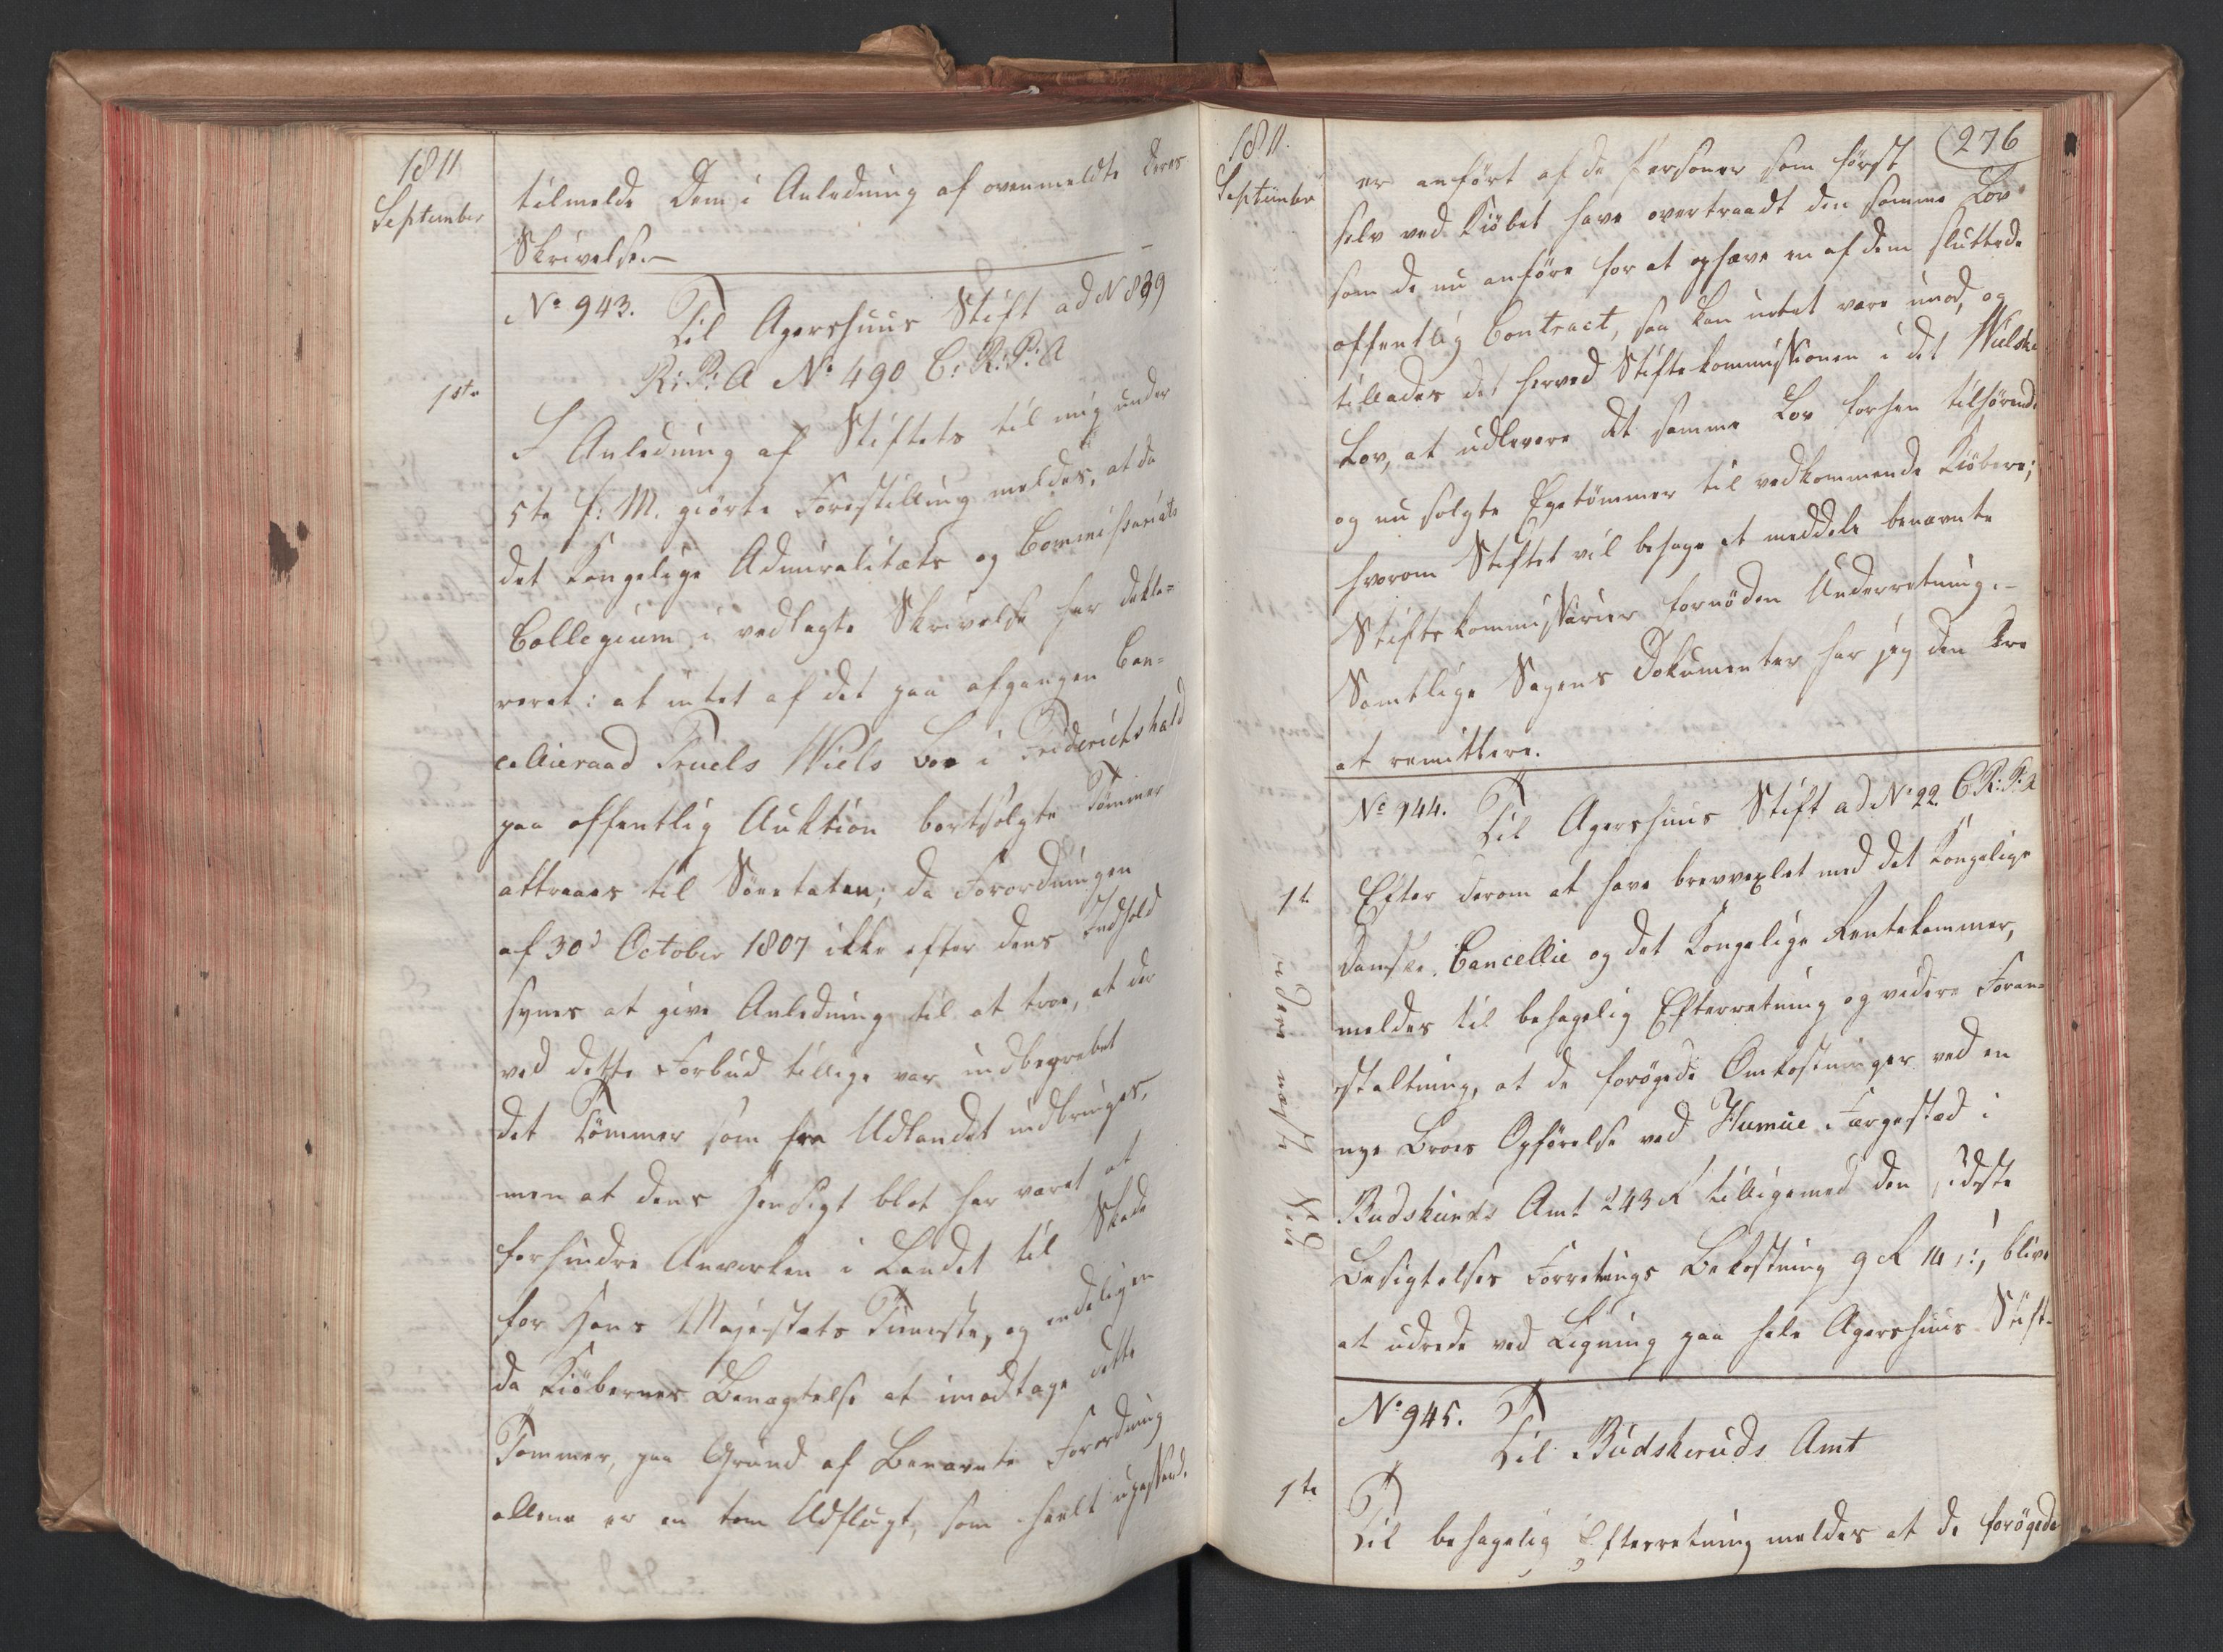 1811
September
tilmelde Dem i Anledning af ovenmeldte Deres
Skrivelse.
No 943.
Til Agershuus Stift ad No 839
R: P: A No 490 C: R: P: A
1ste
I Anledning af Stiftets til mig under
5te f: M. giorte Forestilling meldes, at da
det Kongelige Admiralitæts og Commissariats
Collegium i vedlagte Skrivelse har dekla-
reret: at intet af det paa afgangen Can-
cellieraad Truels Wiels Boe i Friderichshald
paa offentlig Auktion bortsolgte Tömmer
attraaes til Söeetaten; da Forordningen
af 30d October 1807 ikke efter dens Indhold
synes at give Anledning til at troe, at der
ved dette Forbud tillige var indbegrebet
det Tömmer som fra Udlandet indbringes,
men at dens Hensigt blot har været at
forhindre Anvirken i Landet til Skade
for Hans Majestæts Tieneste, og endeligen
da Kiöbernes Benægtelse at imodtage dette
Tömmer, paa Grund af benævnte Forordning
allene er en tom Udflugt, som heelt upassende
1811.
September
276
er anfört af de Personer som först
selv ved Kiöbet have overtraadt den samme Lov
som de nu anföre for at ophæve en af dem sluttede
offentlig Contract, saa kan intet være imod, og
tillades det herved Stiftskommissionen i det Wielske
Boe, at udlevere det samme Boe forhen tilhörende
og nu solgte Egetömmer til vedkommende Kiöbere;
hvorom Stiftet vil behage at meddele benævnte
Stiftskommissarier fornöden Underretning.-
Samtlige Sagens Dokumenter har jeg den Ære
at remittere.
No 944.
Til Agershuus Stift ad No 22. C: R: P: A
1te
Efter derom at have brevvexlet med det Kongelige
Danske Cancellie og det Kongelige Rentekammer,
meldes til behagelig Efterretning og videre Foran-
staltning, at de forögede Omkostninger ved en
nye Broes Opförelse ved Humue Færgestæd i
Budskeruds Amt 243 R tilligemed den sidste
Besigtelses Forretnings Bekostning 9 R 14 s:, blive
at udrede ved Ligning paa hele Agershuus Stift.
No 945.
Til Budskeruds Amt
1te
Til behagelig Efterretning meldes at de forögede